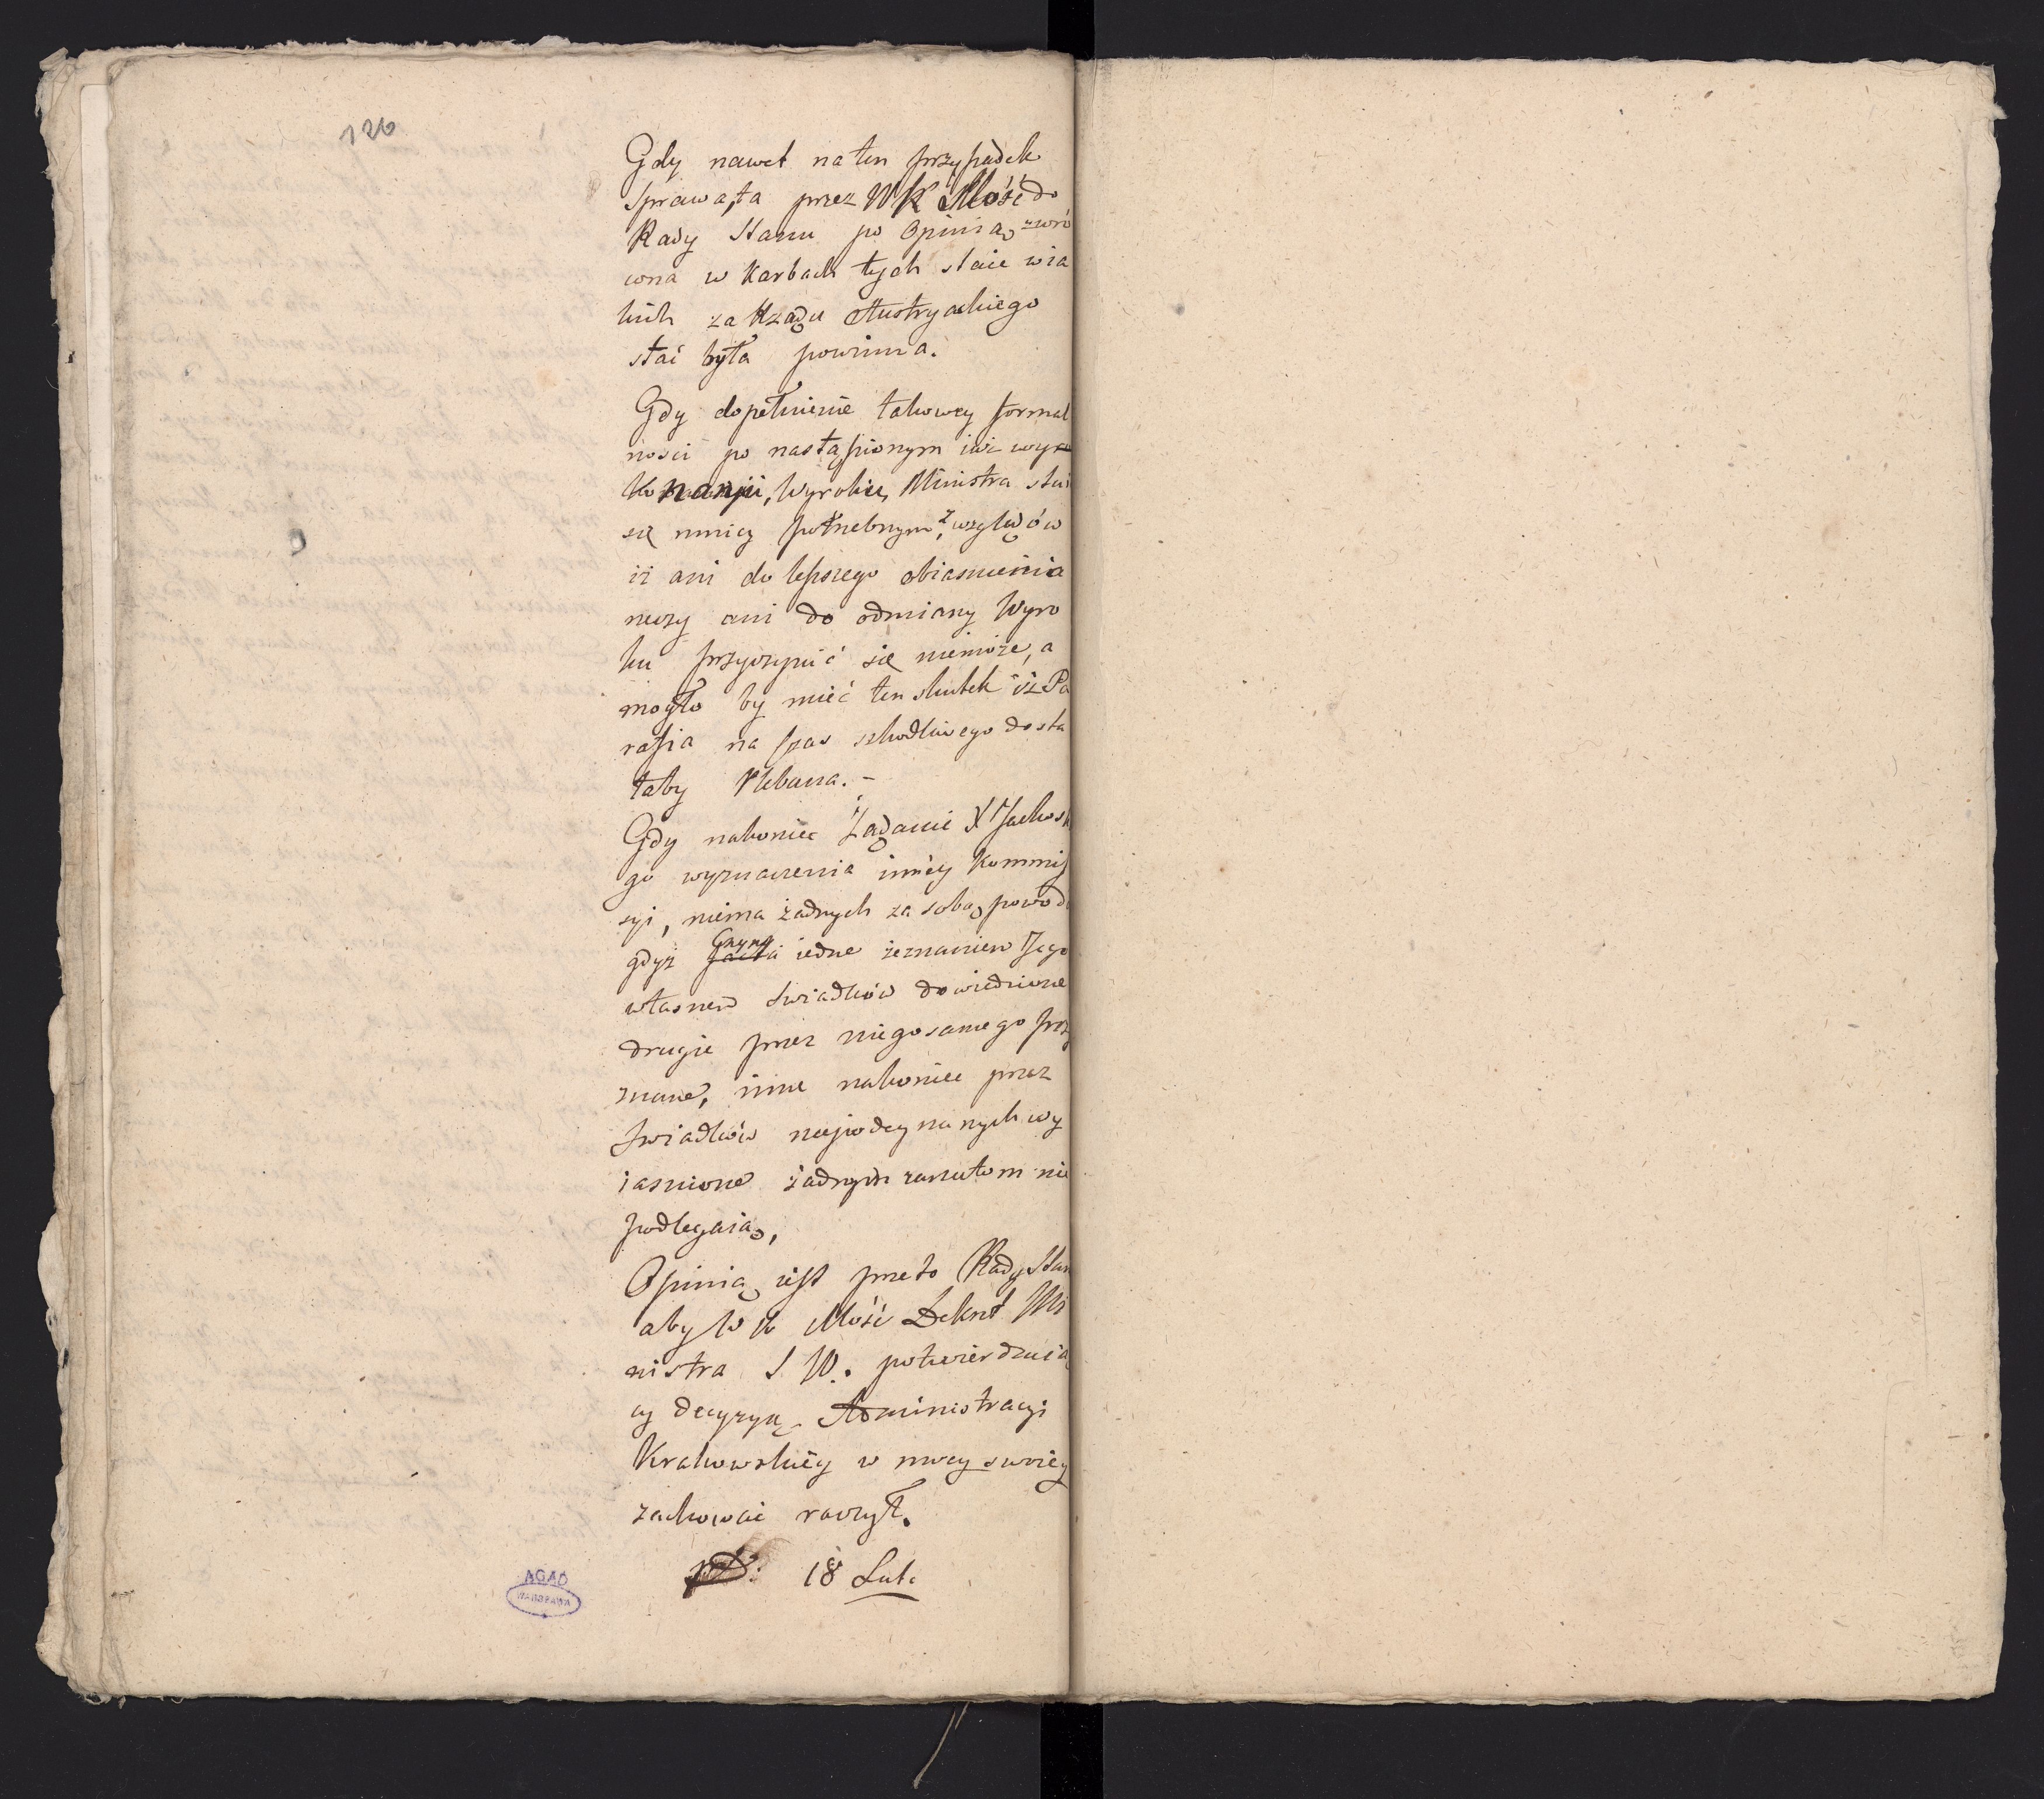 120
Gdy nawet na ten przypadek
sprawa, ta przez WK Mość do
Rady Stanu po Opinią zwró
cona w karbach tych staie w ia
kich za Rządu Austryackiego
stać była powinna.
Gdy dopełnienie takowey formal
ności po nastąpionym iuż wy
konaniu, Wyroku, Ministra staie
się mniey potrzebnym, z względów
iż ani do lepszego obiasnienia
rzeczy ani do odmiany Wyro
ku przyczynić się niemoże, a
mogło by mieć ten skutek iż Pa
rafia na czas szkodliwego dosta
łaby Plebana. -
Gdy nakoniec Żądanie X Jachosk
go wyznaczenia innéy Kommis
syi, niema żadnych za sobą powodó
gdyż Czyny iedne zeznaniem Jego
własnem świadków dowiedzione
drugie przez niego samego przy
znane, inne nakoniec przez
świadków niepodeyrzanych wy
iasnione żadnym zarzutom nie
podlegaią,
Opinią iest przeto Rady Stan
aby W K Mość Dekret Mi
nistra S W. potwierdzaia
cy decyzyą Administracyi
Krakowskiéy w mocy swoiéy
zachować raczył.
18 Lut.
AGAD
WARSZAWA